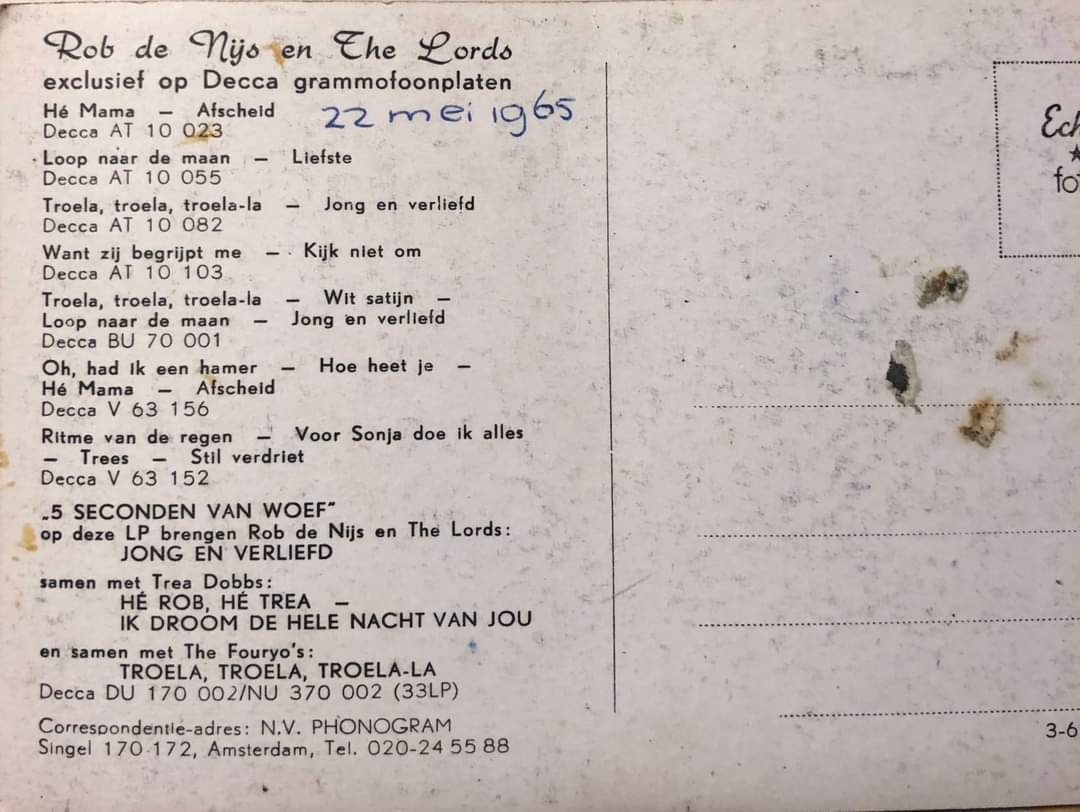 Rob de Nijs en The Lords
exclusief op Decca grammofoonplaten
22 mei 1965
Hé Mama — Afscheid
Decca AT 10 023
Loop naar de maan — Liefste
Decca AT 10 055
Troela, troela, troela-la — Jong en verliefd
Decca AT 10 082
Want zij begrijpt me — Kijk niet om
Decca AT 10 103
Troela, troela, troela-la — Wit satijn —
Loop naar de maan — Jong en verliefd
Decca BU 70 001
Oh, had ik een hamer — Hoe heet je —
Hé Mama — Afscheid
Decca V 63 156
Ritme van de regen — Voor Sonja doe ik alles
— Trees — Stil verdriet
Decca V 63 152
„5 SECONDEN VAN WOEF"
op deze LP brengen Rob de Nijs en The Lords:
JONG EN VERLIEFD
samen met Trea Dobbs:
HÉ ROB, HÉ TREA —
IK DROOM DE HELE NACHT VAN JOU
en samen met The Fouryo's:
TROELA, TROELA, TROELA-LA
Decca DU 170 002/NU 370 002 (33LP)
Correspondentie-adres: N.V. PHONOGRAM
Singel 170-172, Amsterdam, Tel. 020-24 55 88
Ech
fo
3-6